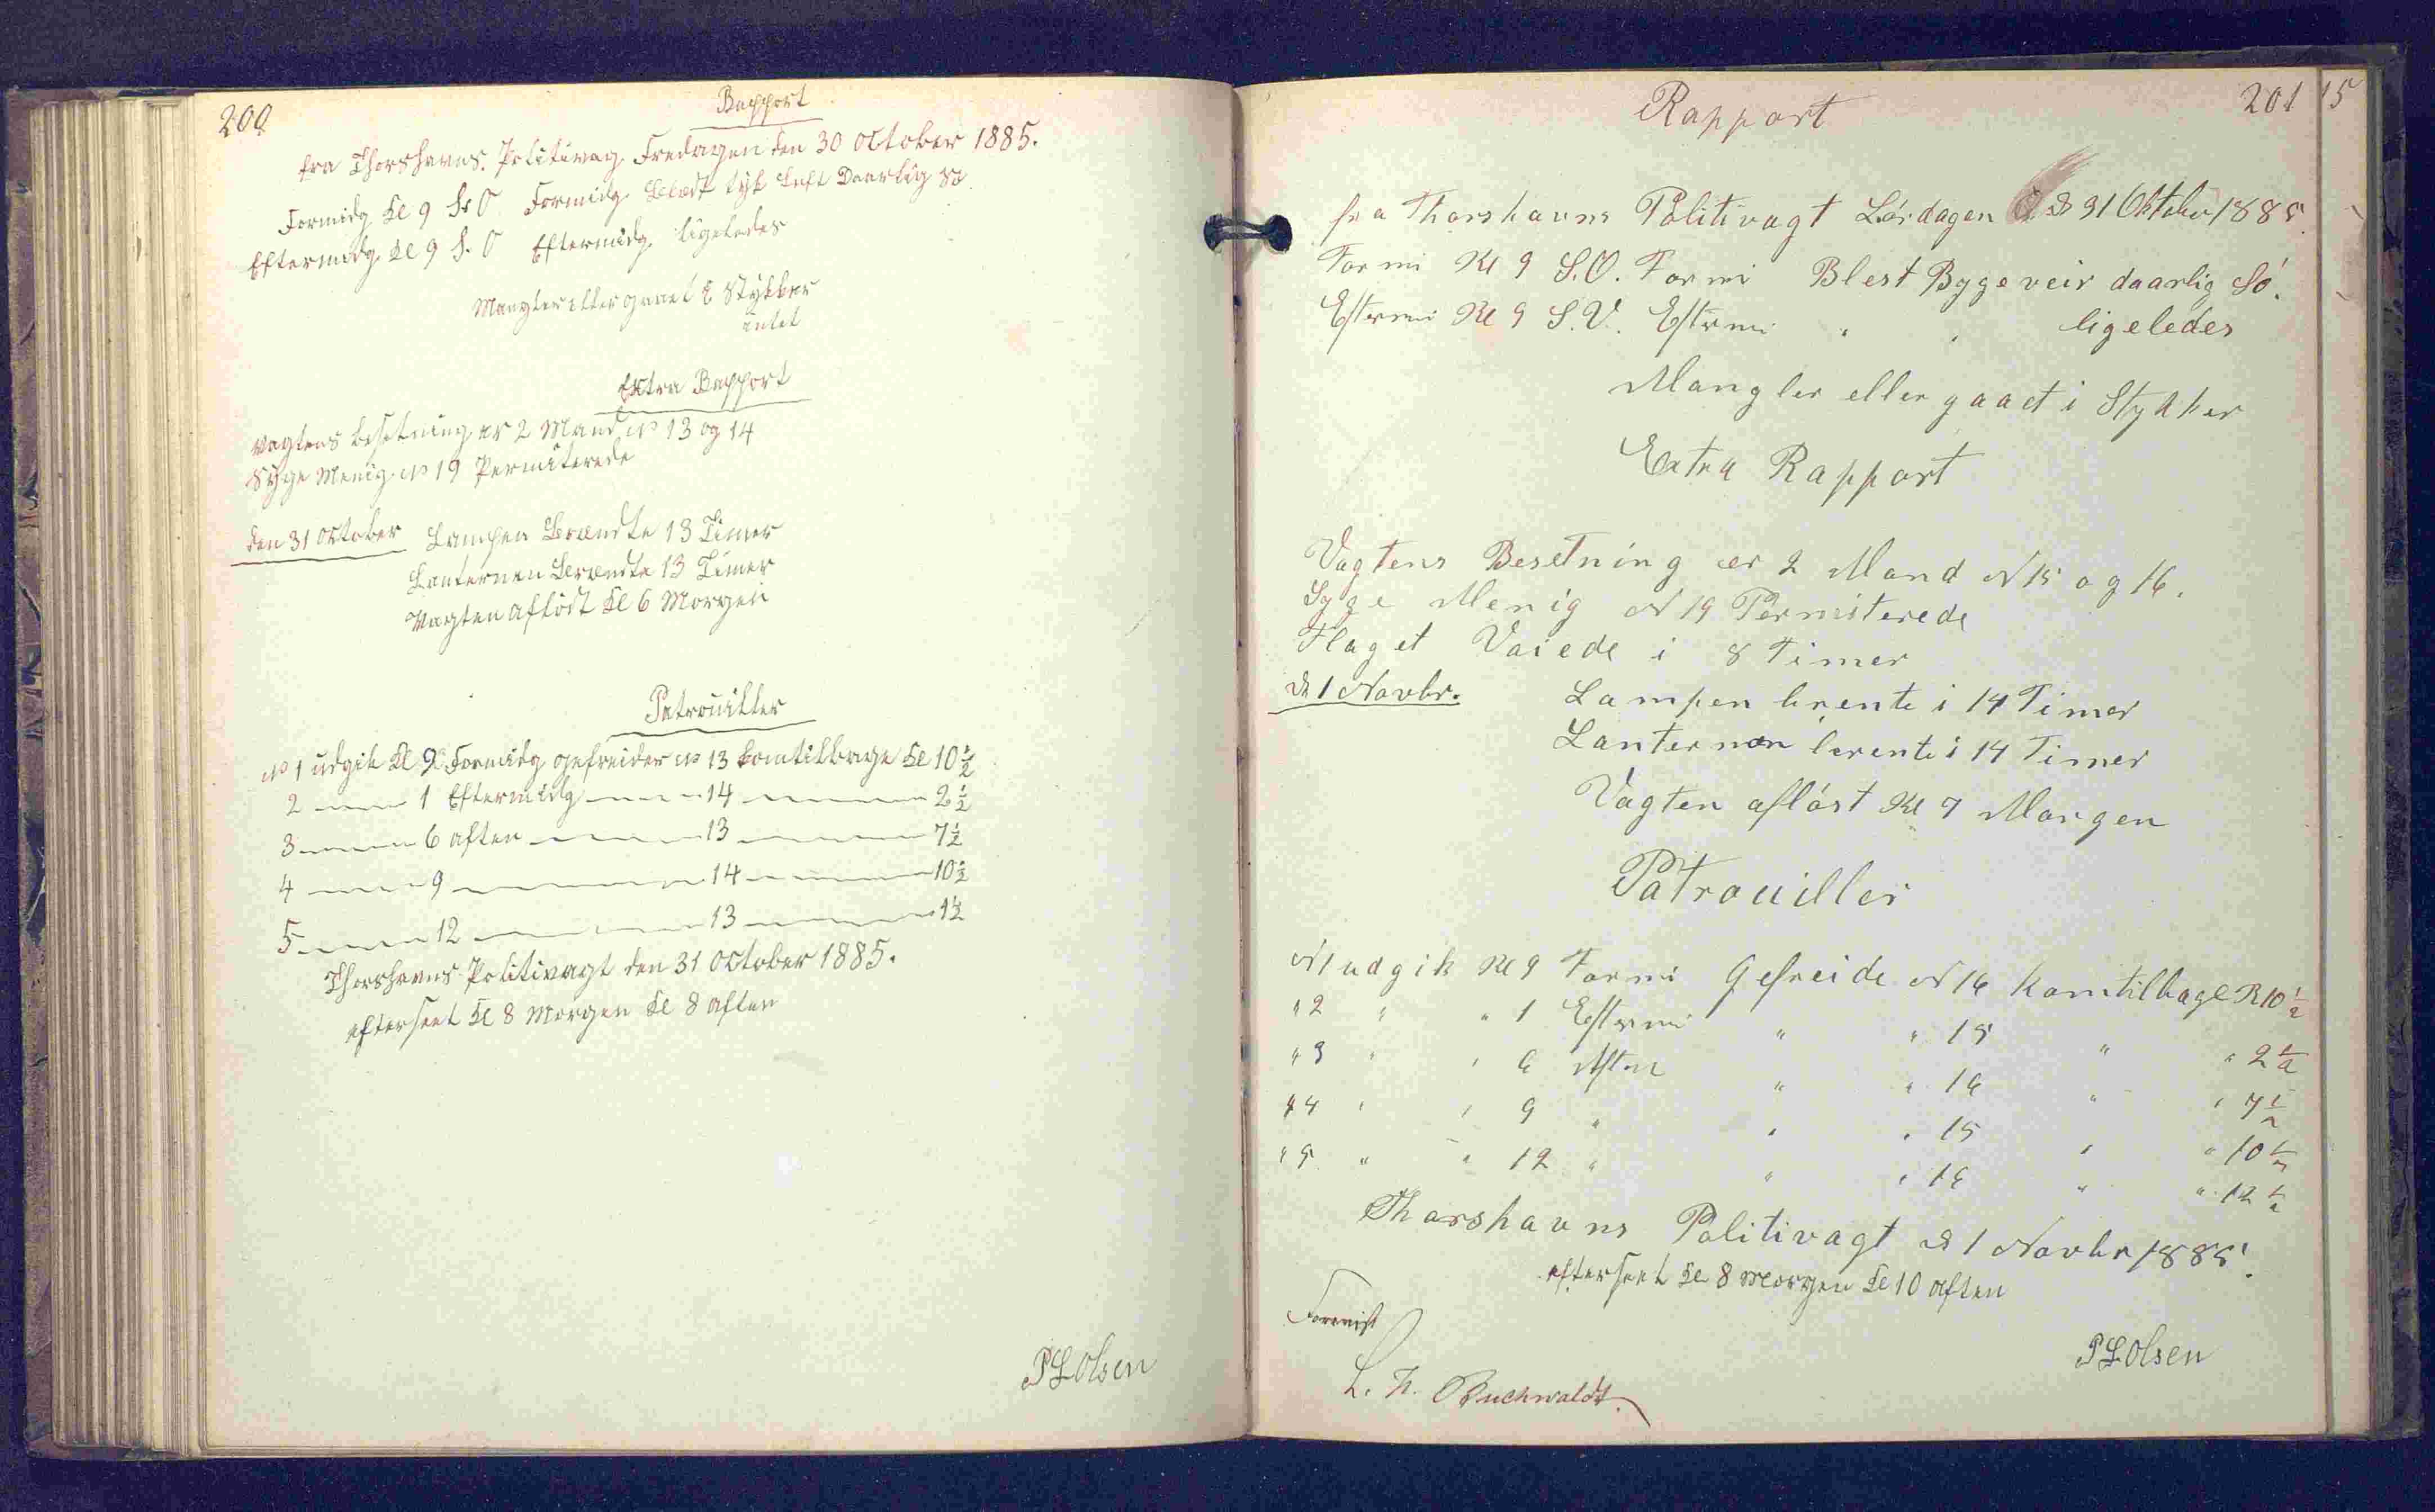 200
Rapport
fra Thorshavns Politivag Fredagen den 30 October 1885.
Formidg Kl 9 S O Formidg Blødt tyk Luft Daarlig Sø
Eftermidg Kl 9 S. O Eftermidg ligeledes
Mangler eller gaaet i Stykker
intet
Extra Rapport
Vagtens besetning er 2 Mand No 13 og 14
Syge Menig No 19 Permiterede
den 31 October Lampen Brændte 13 Timer
Lanternen Brændte 13 Timer
Vagten afløst Kl 6 Morgen
Patrouiller
No 1 udgik Kl 9 Formidg gefreider No 13 komtilbage Kl 10 1/2
2 — 1 Eftermidg — 14 — 2 1/2
3 — 6 aften — 13 — 7 1/2
4 — 9 — 14 — 10 1/2
5 — 12 — 13 — 1 1/2
Thorshavns Politivagt den 31 October 1885.
efterseet Kl 8 Morgen Kl 8 aften
P L Olsen
201
15
Rapport
fra Thorshavns Politivagt Lørdagen d 31 Oktober 1885.
Formi Kl 9 S.O. Formi Blest Bygeveir daarlig Sö.
Eftermi Kl 9 S.V. Eftermi " " ligeledes
Mangler eller gaaet i Stykker
Extra Rapport
Vagtens Besetning er 2 Mand N 15 og 16.
Syge Menig N 19 Permiterede
Flaget Vaiede i 8 Timer
d 1 Novbr. Lampen brente i 14 Timer
Lanternen brente i 14 Timer
Vagten afløst Kl 7 Morgen
Patrouiller
N 1 udgik Kl 9 Formi Gefreide N 16 komtilbage K 10 1/2
" 2 " " 1 Eftermi " " 15 " " 2 1/2
" 3 " " 6 Aften " " 16 " " 7 1/2
" 4 " " 9 " " " 15 " " 10 1/2
" 5 " " 12 " " " 16 " " 12 1/2
Thorshavns Politivagt d 1 Novbr 1885.
efterseet Kl 8 Morgen Kl 10 aften
Forevist
P L Olsen
L. F. Buchwaldt.